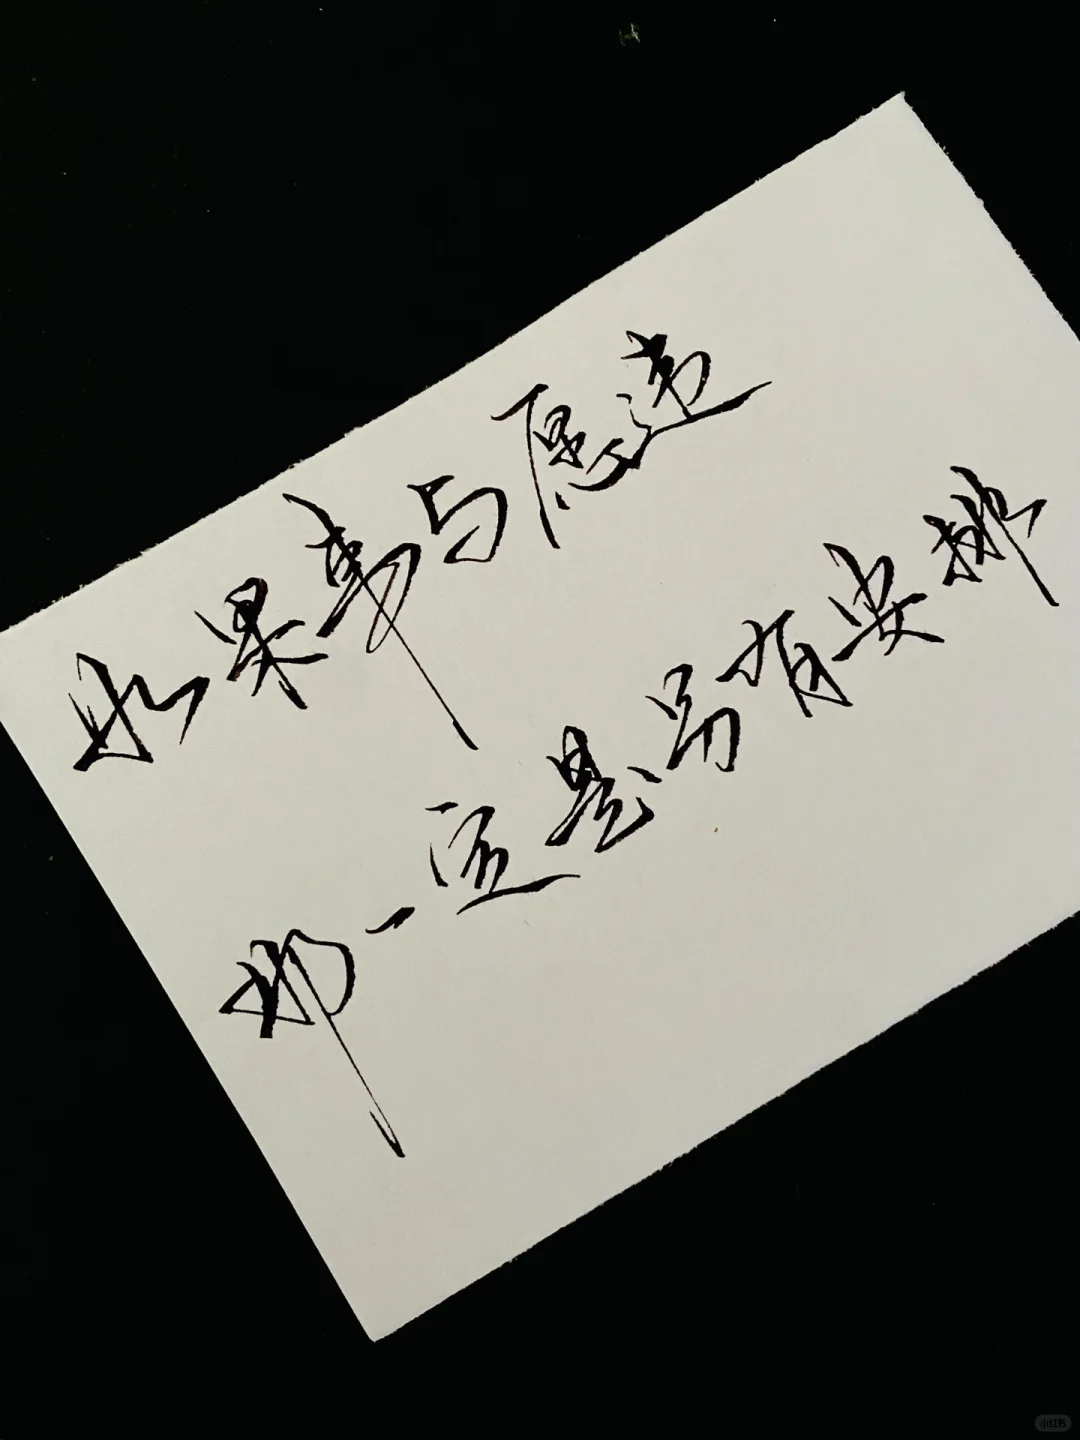 如果事与愿违
那一定是另有安排
小红书